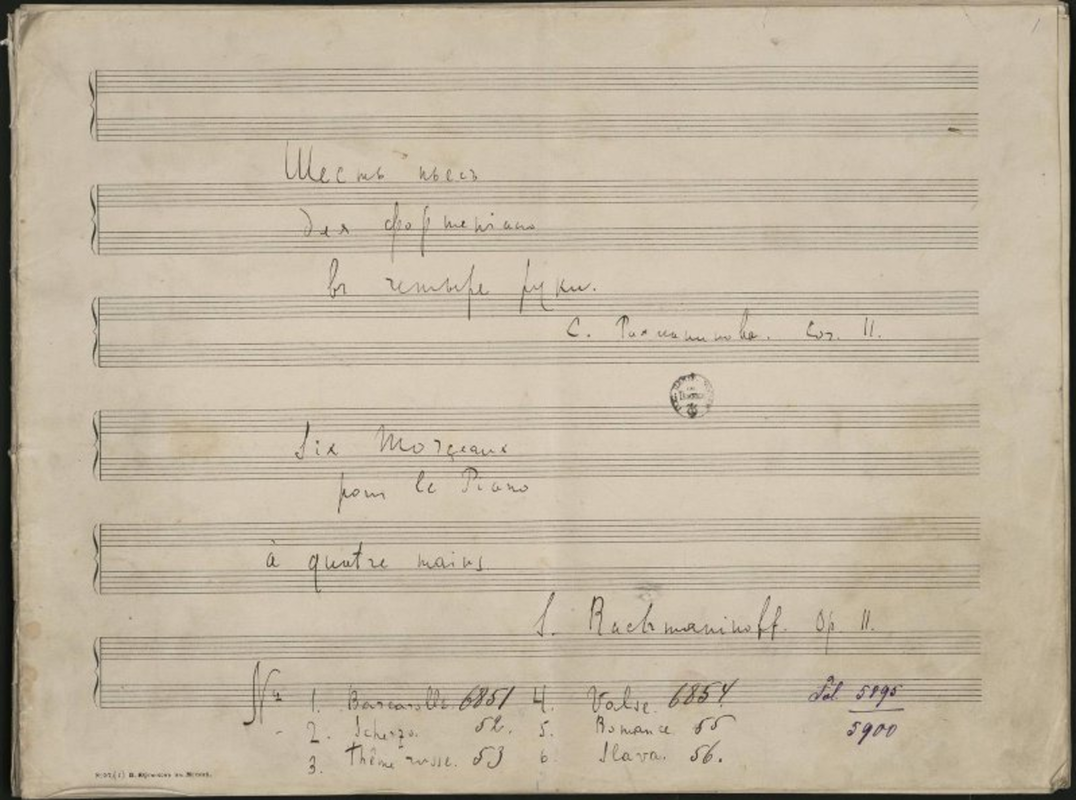 Шесть пьесъ
для фортепіано
въ четыре руки.
С. Рахманинова. Соч. 11.
Six Morçeaux
pour le Piano
à quatre mains
S. Rachmaninoff. Op. 11.
№ 1. Barcarolle. 6851 4. Valse. 6854
2. Scherzo. 52. 5. Romance 55
3. Thême russe. 53 6 Slava. 56.
5895
5900